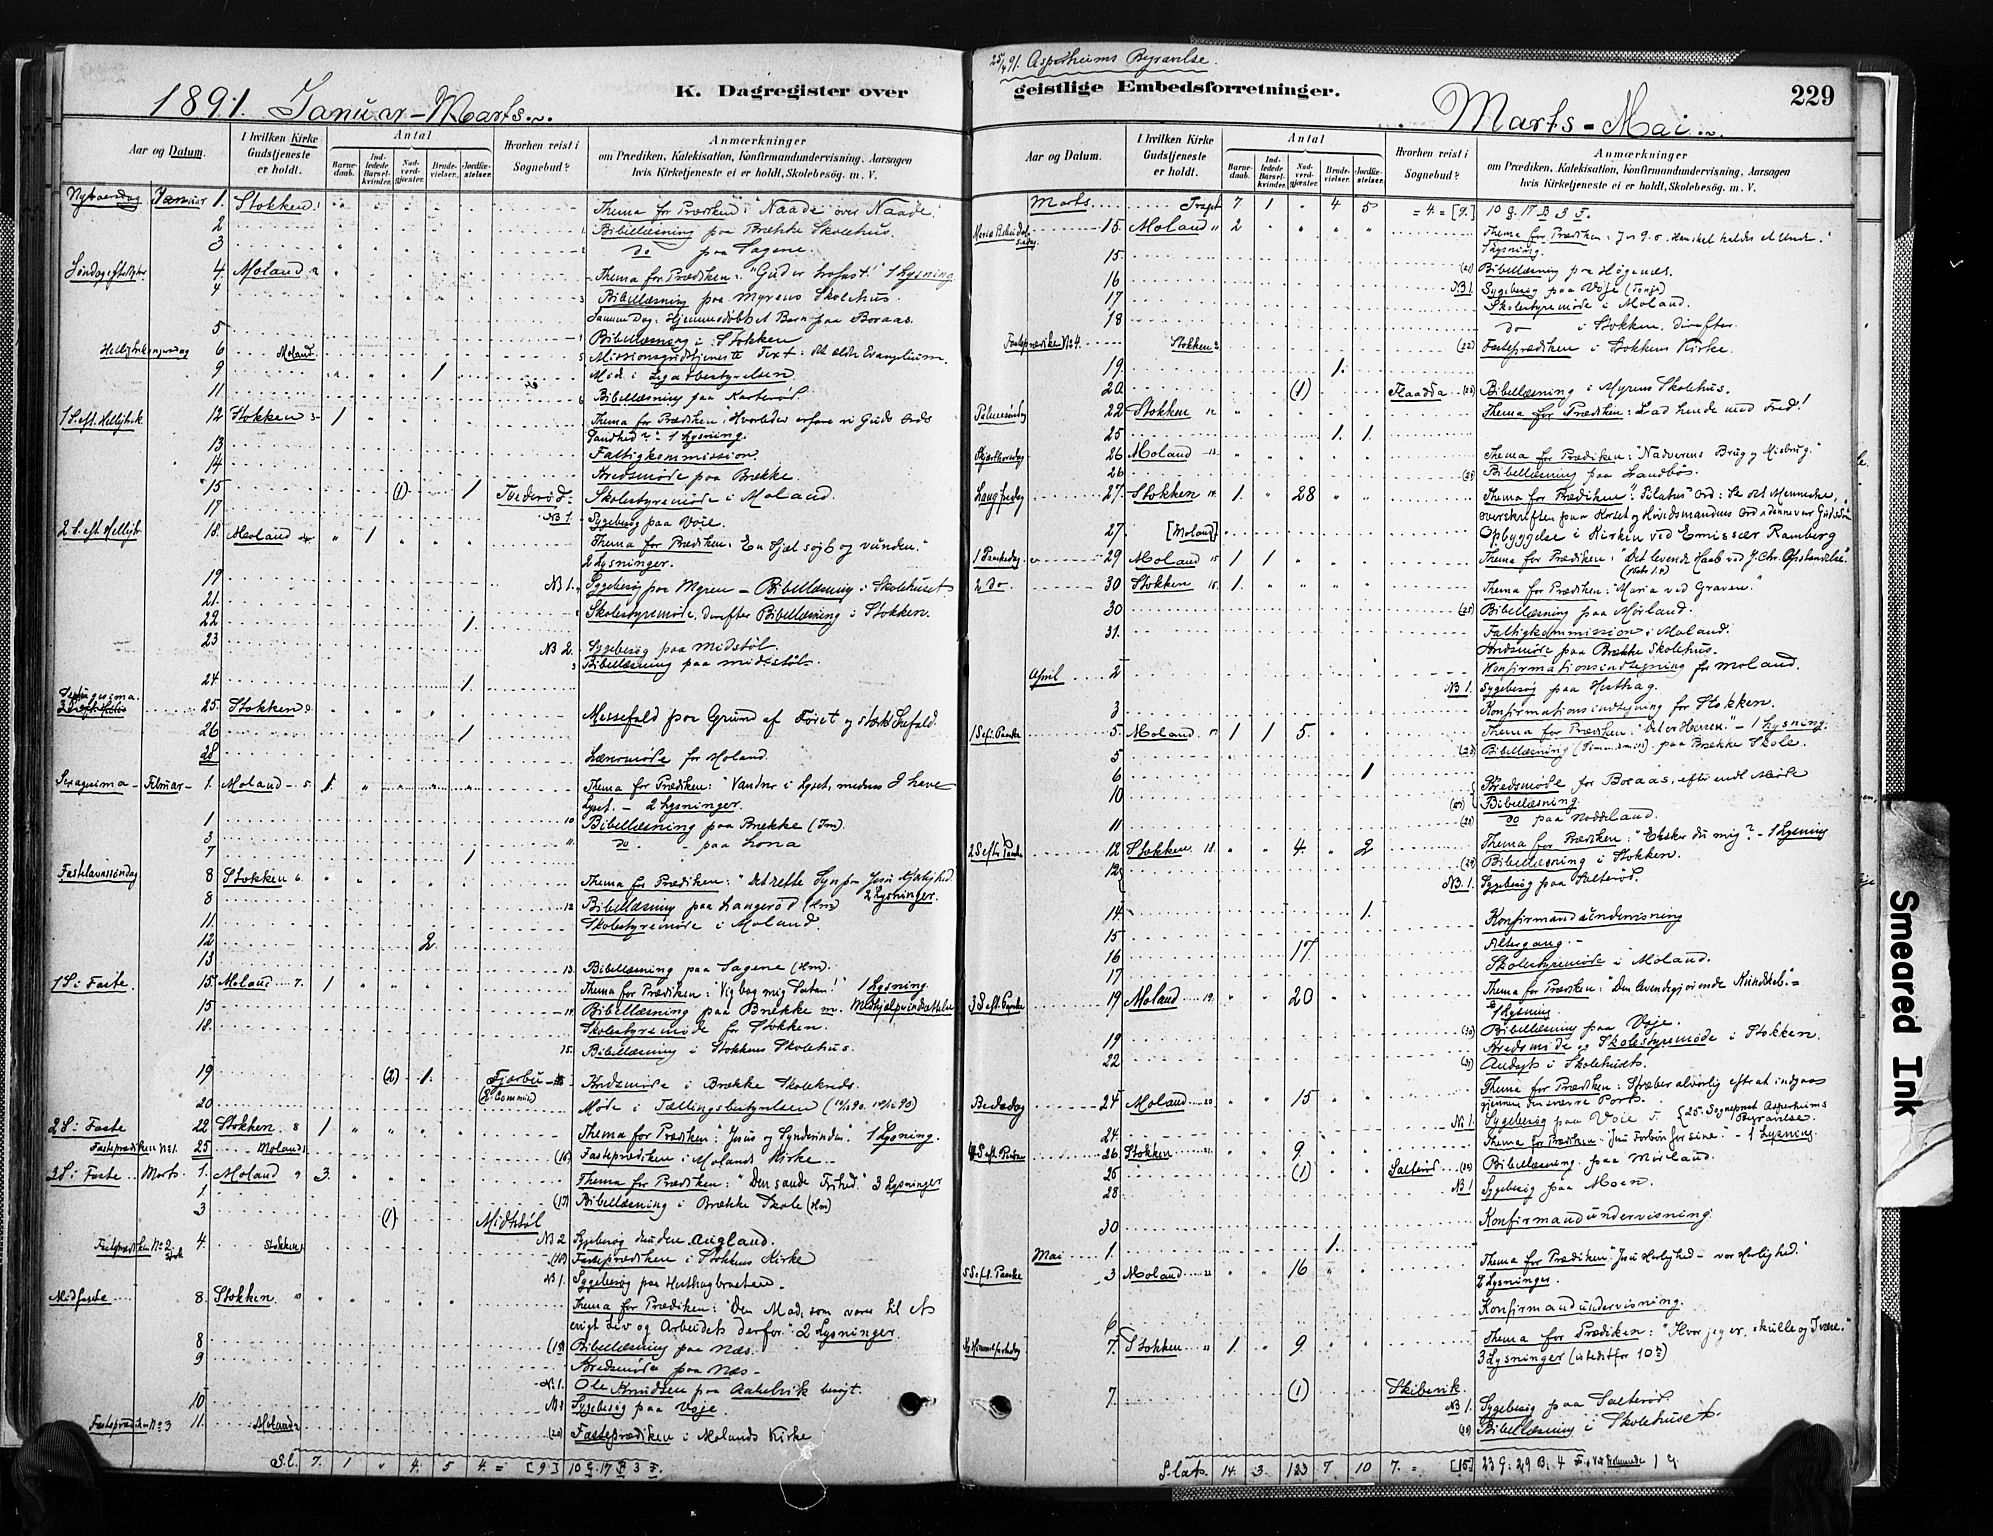 1891. Januar - Marts.
K. Dagregister over
Aar og Datum.
I hvilken Kirke Gudstjeneste er holdt.
Antal
Barnedaab.
Indledede Barselkvinder.
Nadverdgjæster.
Brudevielser.
Jordfæstelser.
Hvorhen reist i Sognebud?
Anmærkninger
om Prædiken, Katekisation, Konfirmandundervisning, Aarsagen
hvis Kirketjeneste ei er holdt, Skolebesøg. m. V.
Nytaarsdag Januar 1. Stokken Thema for Prædiken: "Naade over Naade."
2 Bibellæsning paa Brække Skolehus.
3 do paa Sagene.
4. Moland Thema for Prædiken: "Gud er trofast!" 1 Lysning
4 Bibellæsning paa Myrens Skolehus.
Samme Dag: Hjemmedøbt et Barn paa Boraas.
5 Bibellæsning i Stokken
6 Moland Missionsgudstjeneste Text: det ældste Evangelium
9 1 Møde i Legatbestyrelsen
11 Bibellæsning paa
12 Stokken 1 Thema for Prædiken: Hvorledes erfare vi Guds Ords
Sandhed? 1 Lysning.
13 Fattigkommission.
14 Kredsmøde paa Brække.
15 (1) 1 Skolestyremøde i Moland.
17 NB 1. Sygebesøg paa Voie.
18. Moland 1 Thema for Prædiken: En Sjæl søgt og vunden."
2 Lysninger.
19 NB 1. Sygebesøg paa Myren - Bibellæsning i Skolehuset
21. Skolestyremøde, derefter Bibellæsning i Stokken.
22 1.
23 NB 2. Sygebesøg paa Midstøl
Bibellæsning paa Midtstøl.
24 1
Septuagesima
25. Stokken Messefald paa Grund af Føret og stærkt Snefald.
26 1
28 Lærermøde for Moland.
Sexagesima Februar 1. Moland 5 1. Thema for Prædiken: "Vandrer i Lyset, medens I have
Lyset. - 2 Lysninger.
1 10 Bibellæsning paa Brække
3 11 do paa Lona
7 1
Fastelavnssøndag 8 Stokken 6. Thema for Prædiken: "Det rette Syn paa Jesu
2 Lysninger.
8 12 Bibellæsning paa Langerød (Em)
11. Skolestyremøde i Moland.
12 2
13 13. Bibellæsning paa Sagene (Em).
1 S. i Faste. 15. Moland 7. 1 Thema for Prædiken: "Vig bag mig Satan!" 1 Lysning.
15 14 Bibellæsning paa Brække
18. Skolestyremøde for Stokken.
15. Bibellæsning i Stokkens Skolehus.
19 (2) 1. Kredsmøde i Brække Skolekreds.
20 Møde i Tællingsbestyrelsen
2 S. i Faste 22 Stokken 8 1 Thema for Prædiken: "Jesus og Synderinden". 1 Lysning.
Fasteprædiken No 1. 25 Moland (16) Fasteprædiken i Molands Kirke
3 S. i Faste Marts 1. Moland 9 3. Thema for Prædiken: "Den sande Frihed" 3 Lysninger
1 (17) Bibellæsning i Brække Skole (Em)
3 (1) Midtstøl
Fasteprædiken No 2 4. Stokken NB 2 Sygebesøg Augland.
(18) Fasteprædiken i Stokkens Kirke
NB 1. Sygebesøg paa Hesthagbraaten.
Midfaste 8. Stokken 10 Thema for Prædiken: "Den Mad, som varer til et
evigt Liv og Arbeidet derfor." 2 Lysninger.
8 (19) Bibellæsning paa Næs.
9 Kredsmøde paa Næs.
10 Ole Knudsen paa
Sygebesøg paa Voje.
Fasteprædiken No 3 11. Moland (20) Fasteprædiken i Molands Kirke
S.l. 7. 1 " 4. 5 4. = [9] 10 G. 17 B 3 F.
25/4 91. Asperheims Begravelse.
geistlige Embedsforretninger.
Marts - Mai
229
Aar og Datum.
I hvilken Kirke Gudstjeneste er holdt.
Antal
Barnedaab.
Indledede Barselkvinder.
Nadverdgjæster.
Brudevielser.
Jordfæstelser.
Hvorhen reist i Sognebud?
Anmærkninger
om Prædiken, Katekisation, Konfirmandundervisning, Aarsagen
hvis Kirketjeneste ei er holdt, Skolebesøg. m. V.
Marts 7 1 " 4 5 = 4. = [9.] 10 G. 17 B 3 F.
15 Moland 2 Thema for Prædiken:
1 Lysning.
15. (21) Bibellæsning paa Høgenæs.
16 NB 1. Sygebesøg paa Voje
17 Skolestyremøde i Moland.
18 do i Stokken, derefter
Fasteprædiken No 4. Stokken (22) Fasteprædiken i Stokkens Kirke.
19. 1.
20 (1) Flaadda (23) Bibellæsning i Myrens Skolehus.
Palmesøndag 22 Stokken 12 Thema for Prædiken: Lad hende med Fred!
25 1. 1.
Skjærthorsdag 26 Moland 13. Thema for Prædiken: "Nadverens Brug og Misbrug."
26 Bibellæsning paa
Langfredag 27. Stokken 14. 1. 28 Thema for Prædiken: "Pilatus" Ord: Se det Menneske,
Overskriften paa Korset og Høvedsmandens Ord: denne var Guds Søn
27. [Moland] Opbyggelse i Kirken ved Emissær Ramberg
1 Paaskedag 29 Moland 15 1 1 Thema for Prædiken: "Det levende Haab ved J. Chr. Opstandelse"
2 do 30 Stokken 16. 1. Thema for Prædiken: "Maria ved Graven."
30 (25) Bibellæsning paa Mørland.
31. Fattigkommission i Moland.
Kredsmøde paa Brække Skolehus.
April 2 Konfirmationsindtegning for Moland.
NB 1. Sygebesøg paa Hesthag.
3 Konfirmationsindtegning for Stokken.
1 S eft. Paaske 5. Moland. 17 1 1 5. Thema for Prædiken: "Det er Herren." - 1 Lysning.
5 Bibellæsning paa Brække Skole.
6 1 Kredsmøde for Boraas,
10 Bibellæsning.
11 do paa Noddeland.
2 S eft. Paaske 12 Stokken 18. 4. 2 Thema for Prædiken: "Elsker du mig?" - 1 Lysning
12 (29) Bibellæsning i Stokken.
NB. 1. Sygebesøg paa Salterød.
14. 1. Konfirmandundervisning
15 Altergang.
16 17 Skolestyremøde i Moland.
17
3 S eft. Paaske 19 Moland 19. 20 Thema for Prædiken: "Den levendegjørende
1 Lysning
19 (30) Bibellæsning paa Voje.
22 Kredsmøde og Skolestyremøde i Stokken.
Andagt i Skolehuset.
Bededag 24 Moland 20 15 Thema for Prædiken: Stræber alvorlig efter at indgaa
gjennem den snævre Port.
24. N: 1. Sygebesøg paa Voie {25. Sogneprest Asperheims Begravelse.
4 S eft. Paaske 26 Stokken 21 9. Thema for Prædiken: Jesu Forbøn for sine." - 1 Lysning.
26 (1) Salterød Bibellæsning paa Mørland.
28. NB 1 Sygebesøg paa Moen.
30 Konfirmandundervisning.
Mai 1. 1.
5 S eft. Paaske 3 Moland 22 16 Thema for Prædiken: "Jesu Herlighed - vor Herlighed."
2 Lysninger.
6 Konfirmandundervisning.
7. Stokken 23 1. 9. Thema for Prædiken: "Hvor jeg er, skulle og I være."
3 Lysninger (istedetfor 10de)
7. (1) Skibevik NB 1. Sygebesøg paa Salterød.
Bibellæsning i Skolehuset.
S. lats. 14. 3. 123 7. 10 7. = [15] 23 G: 29 B: 4 F
Smeared Ink